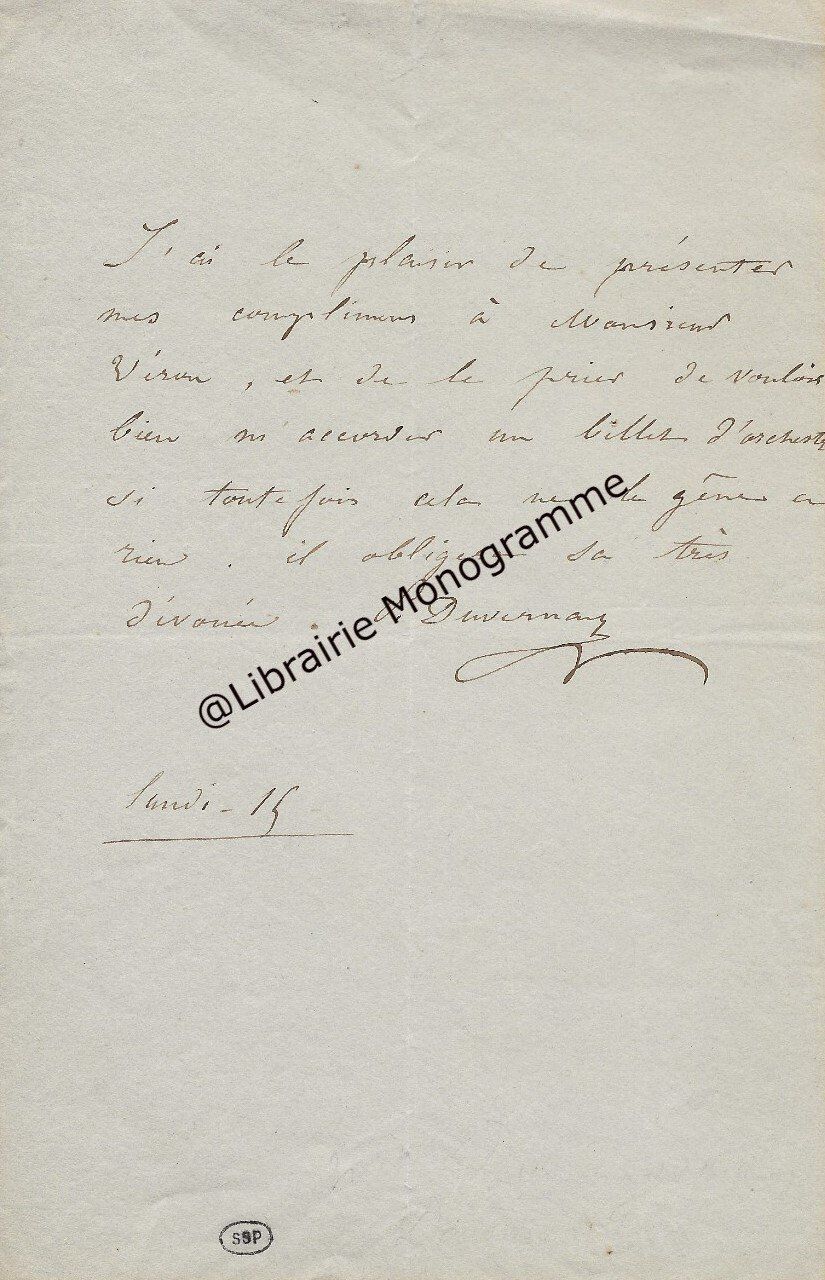 J'ai le plaisir de présenter
mes complimens à Monsieur
Véron, et de le prier de vouloir
bien m'accorder un billet d'orchestre
si toutefois cela ne le gêne en
rien. il obligera sa très
dévouée. Duvernay
lundi - 15
@Librairie Monogramme
SSP